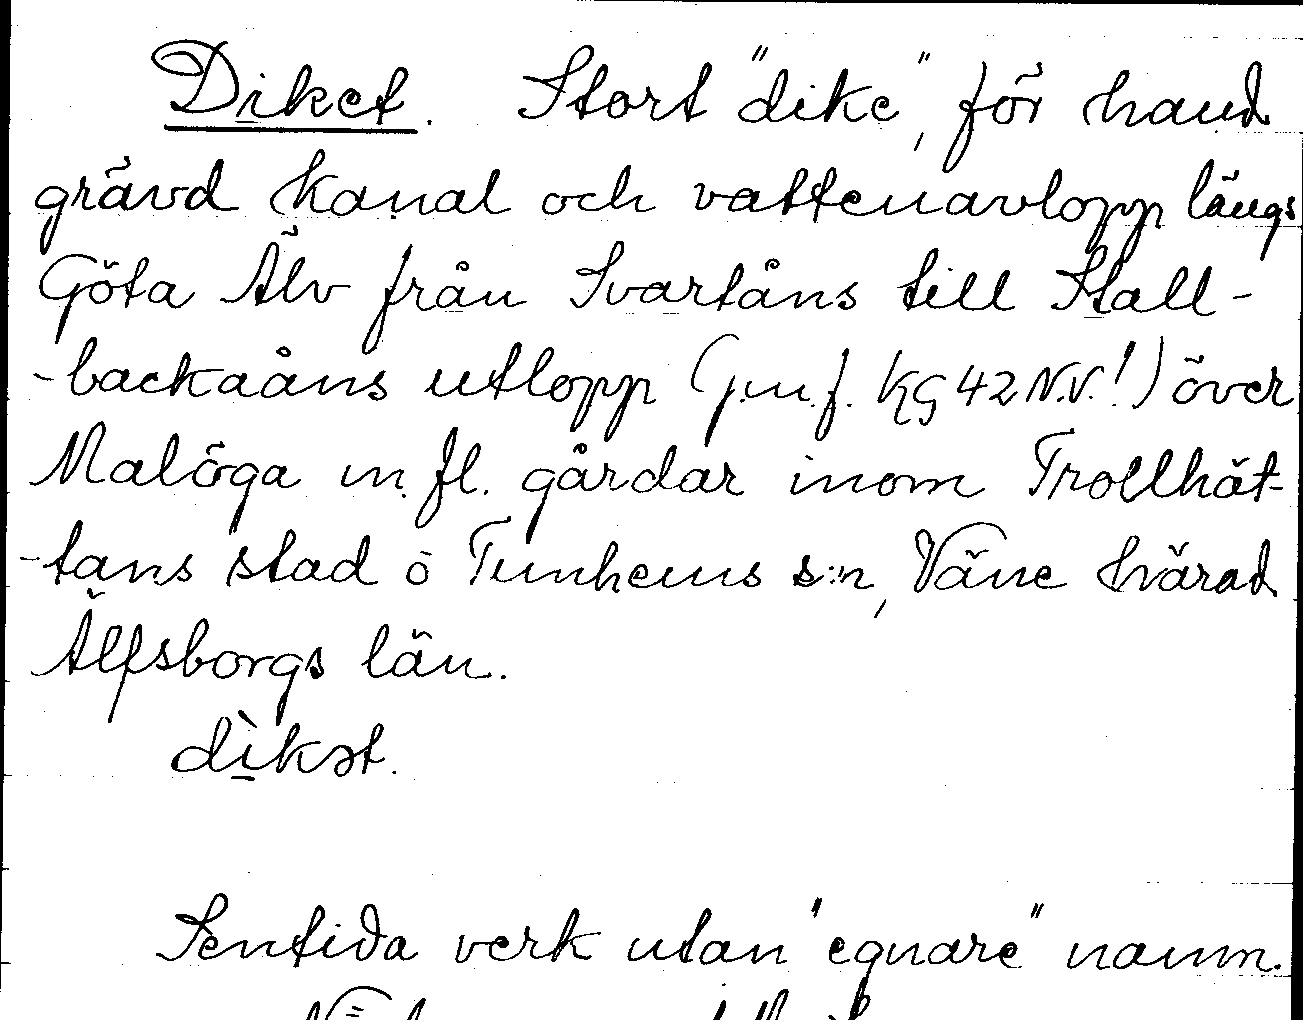 Diket. Stort "dike", för hand
grävd kanal och vattenavlopp längs
Göta Älv från Svartåns till Stall-
-backaåns utlopp (j.m.f. KG 42 N.V.!) över
Malöga m. fl. gårdar inom Trollhät-
-tans stad o Tunhems s:n, Väne härad
Älfsborgs län.
dìkət.
Sentida verk utan "egnare" namn.